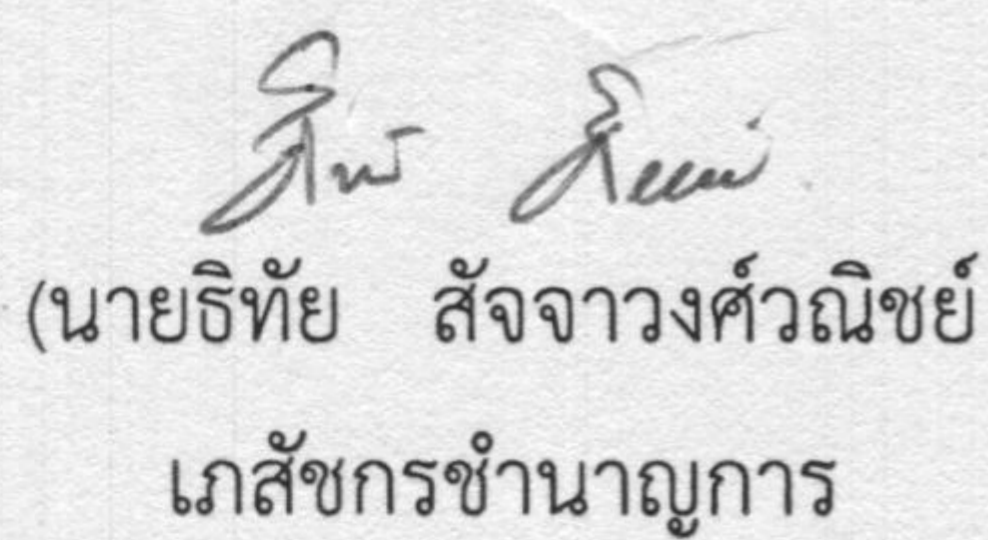 (นายธิทัย สัจจาวงศ์วณิชย์
เภสัชกรชำนาญการ